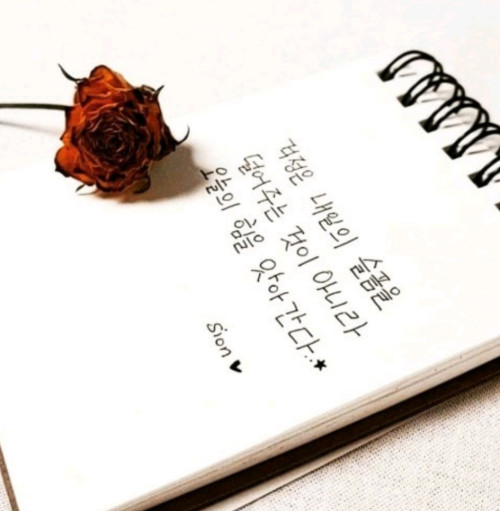 걱정은 내일의 슬픔을
덜어주는 것이 아니라
오늘의 힘을 앗아간다..★
Sion♥